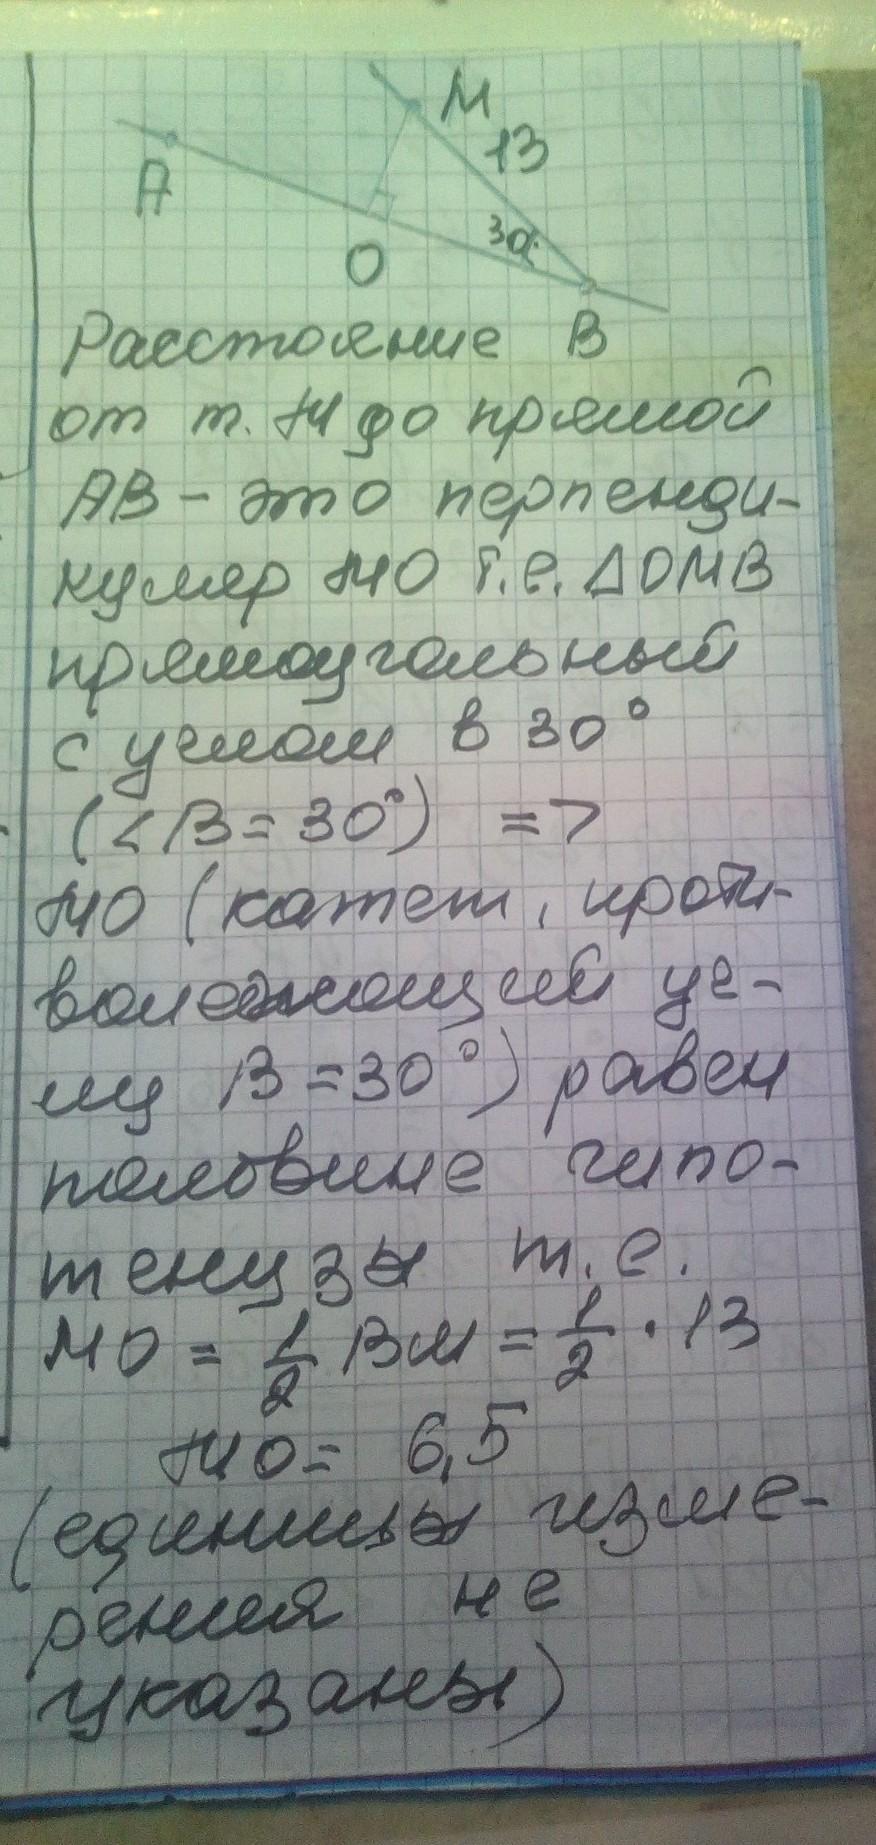 М
13
А
30°
О
В
Расстояние
от т. М до прямой
АВ - это перпенди-
куляр МО т.е. ΔОМВ
прямоугольный
с углом в 30°
(<В = 30°) =>
МО (катет, проти-
волежащий уг-
лу В = 30°) равен
половине гипо-
тенузы т.е.
МО = 1/2 ВМ = 1/2 · 13
МО = 6,5
(единицы изме-
рения не
указаны)